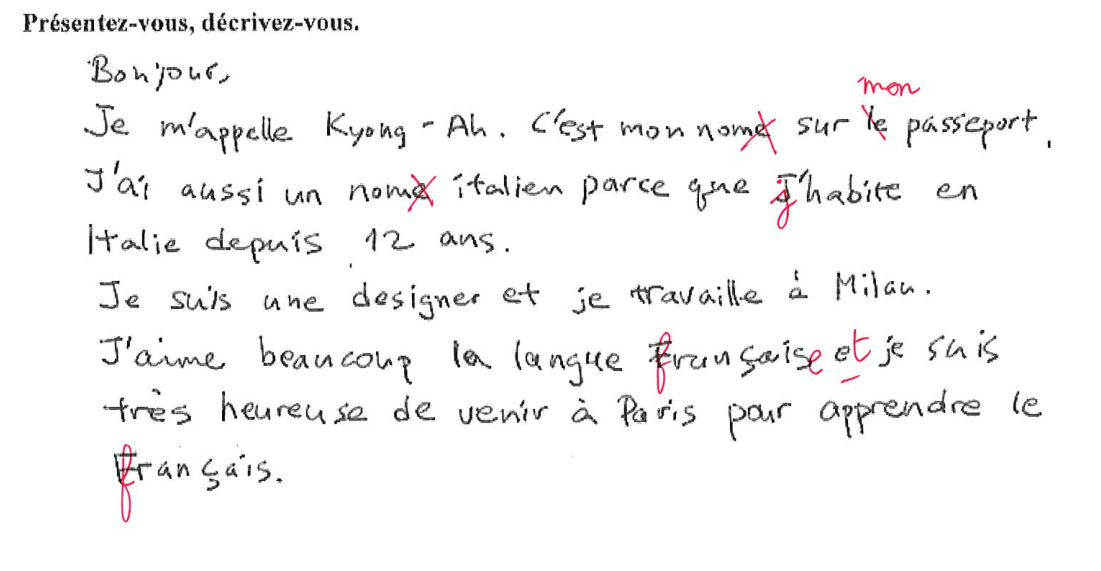 Présentez-vous, décrivez-vous.
Bonjour,
mon
Je m'appelle Kyong-Ah. C'est mon nome sur le passeport.
J'ai aussi un nome italien parce que j'habite en
Italie depuis 12 ans.
Je suis une designer et je travaille à Milan.
J'aime beaucoup la langue française et je suis
très heureuse de venir à Paris pour apprendre le
français.